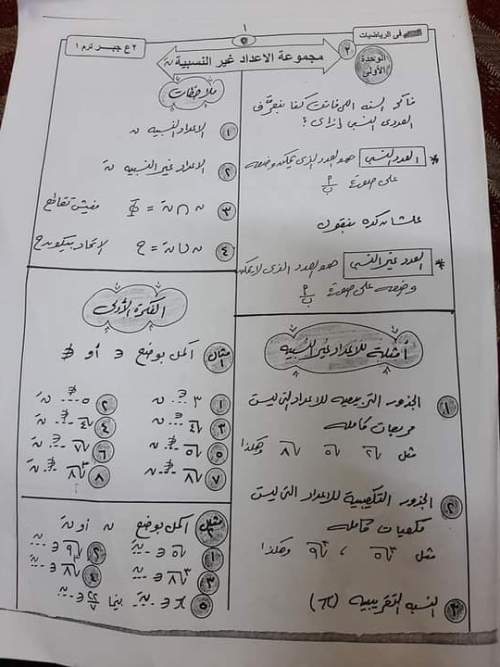 ١
فى الرياضيات
٢ ع جبر ترم ١
الوحدة الأولى
٢
مجموعة الاعداد غير النسبية نَ
فاكر السنه اللى فاتت كنا بنعرّف
العدد النسبى إزاى ؟
* العدد النسبى هو العدد الذى يمكن وضعه
على صورة أ/ب
علشان كده هنقول
* العدد غير النسبى هو العدد الذى لا يمكن
وضعه على صورة أ/ب
أمثلة للأعداد غير النسبيه
١ الجذور التربيعيه للاعداد التى ليست
مربعات كامله
مثل √٢ √٥ √٨ وهكذا
٢ الجذور التكعيبية للاعداد التى ليست
مكعبات كامله
مثل ∛٥ ، ∛٩ وهكذا
٣ النسبه التقريبيه (π)
ملاحظات
١ الاعداد النسبيه ن
٢ الاعداد غير النسبيه نَ
٣ ن ∩ نَ = Φ مفيش تقاطع
٤ ن ∪ نَ = ح الاتحاد بيكون ح
الفكرة الأولى
مثال ١ اكمل بوضع ∈ أو ∉
١ ٣ ... ن
٢ ٥ ..∉.. نَ
٣ √٤ ... ن
٤ √٤ ..∉.. نَ
٥ √٥ ..∉.. ن
٦ √٧ ..∉.. ن
٧ √٨ ..∉.. ن
٨ ∛٨ ..∉.. نَ
مثال ٢ اكمل بوضع ن أو نَ
١ √٥ ∈ ..نَ..
٢ ∛٩ ∈ ..نَ..
٣ ∛٨ ∈ ..ن..
٤ √٨ ∈ ..نَ..
٥ π ∈ ..نَ.. بينما ٢٢/٧ ∈ ..ن..